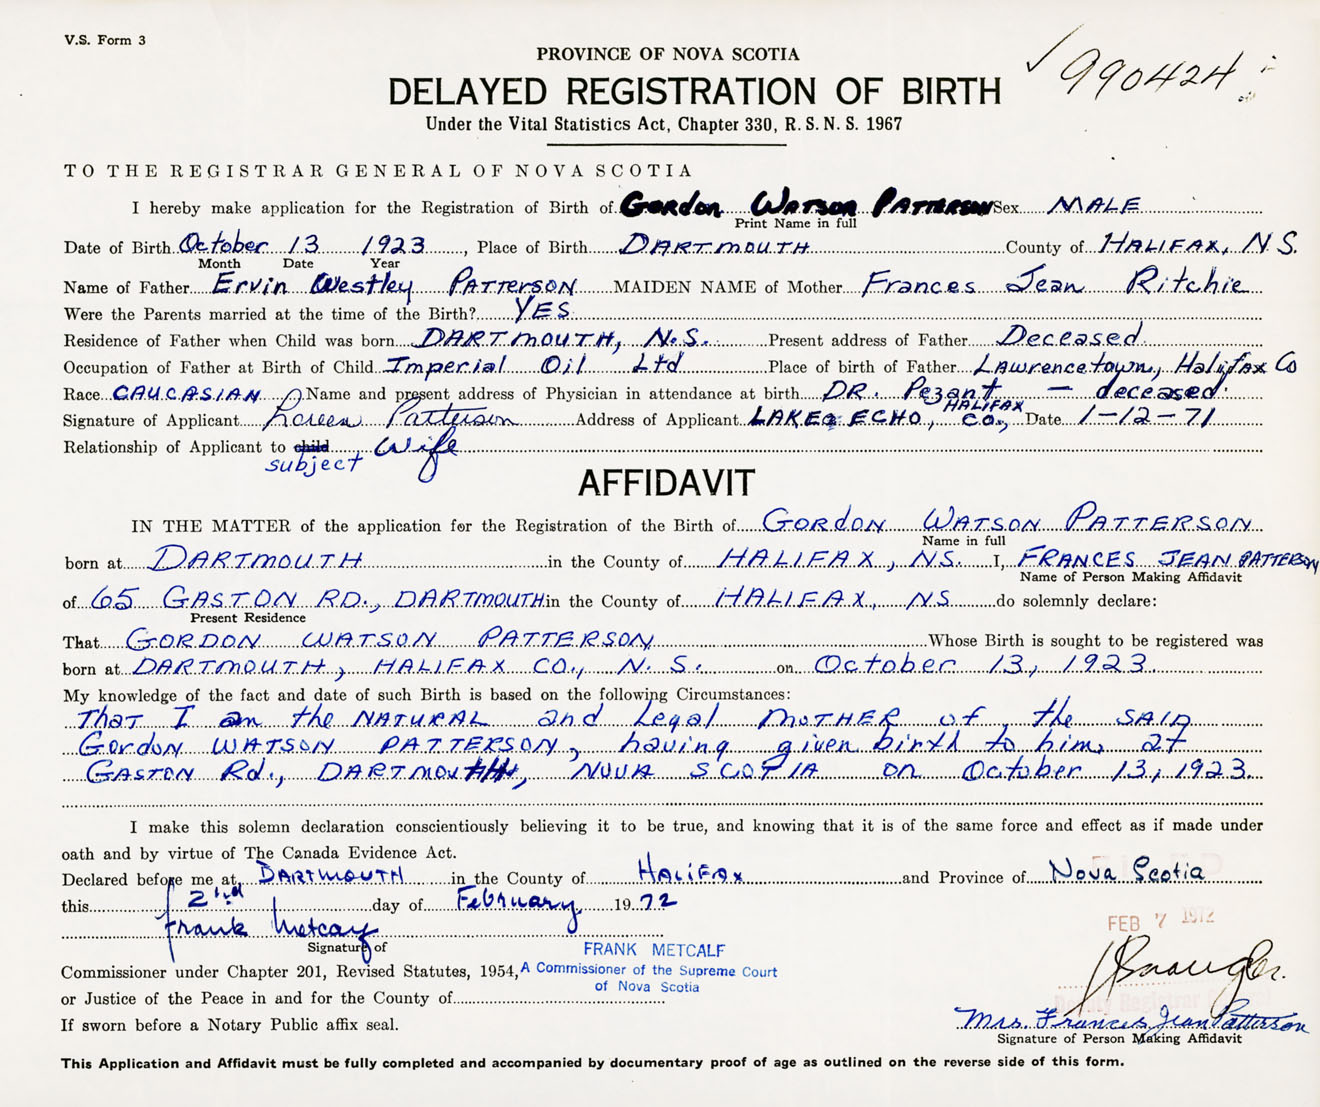 V.S. Form 3
PROVINCE OF NOVA SCOTIA
990424
DELAYED REGISTRATION OF BIRTH
Under the Vital Statistics Act, Chapter 330, R. S. N. S. 1967
TO THE REGISTRAR GENERAL OF NOVA SCOTIA
I hereby make application for the Registration of Birth of Gordon Watson PATTERSON Sex MALE
Print Name in full
Date of Birth October 13 1923, Place of Birth DARTMOUTH County of HALIFAX, N.S.
Month Date Year
Name of Father Ervin Westley PATTERSON MAIDEN NAME of Mother Frances Jean Ritchie
Were the Parents married at the time of the Birth? YES
Residence of Father when Child was born DARTMOUTH, N.S. Present address of Father Deceased
Occupation of Father at Birth of Child Imperial Oil Ltd Place of birth of Father Lawrencetown, Halifax Co
Race CAUCASIAN Name and present address of Physician in attendance at birth DR. Pezant — deceased.
Signature of Applicant Patterson Address of Applicant LAKE ECHO, HALIFAX CO., Date 1-12-71
Relationship of Applicant to child Wife
subject
AFFIDAVIT
IN THE MATTER of the application for the Registration of the Birth of GORDON WATSON PATTERSON
Name in full
born at DARTMOUTH in the County of HALIFAX, NS. I, FRANCES JEAN PATTERSON
Name of Person Making Affidavit
of 65 GASTON RD., DARTMOUTH in the County of HALIFAX, NS do solemnly declare:
Present Residence
That GORDON WATSON PATTERSON Whose Birth is sought to be registered was
born at DARTMOUTH, HALIFAX CO., N.S. on October 13, 1923.
My knowledge of the fact and date of such Birth is based on the following Circumstances:
That I am the NATURAL and legal MOTHER of the SAID
Gordon WATSON PATTERSON, having given birth to him at
GASTON Rd., DARTMOUTH, NOVA SCOTIA on October 13, 1923.
I make this solemn declaration conscientiously believing it to be true, and knowing that it is of the same force and effect as if made under
oath and by virtue of The Canada Evidence Act.
Declared before me at DARTMOUTH in the County of HALIFAX and Province of Nova Scotia
this 2nd day of February 1972
FEB 7 1972
Frank Metcalf
Signature of
FRANK METCALF
Commissioner under Chapter 201, Revised Statutes, 1954, A Commissioner of the Supreme Court
of Nova Scotia
or Justice of the Peace in and for the County of
Deputy Registrar General
If sworn before a Notary Public affix seal. Mrs. Frances Jean Patterson
Signature of Person Making Affidavit
This Application and Affidavit must be fully completed and accompanied by documentary proof of age as outlined on the reverse side of this form.